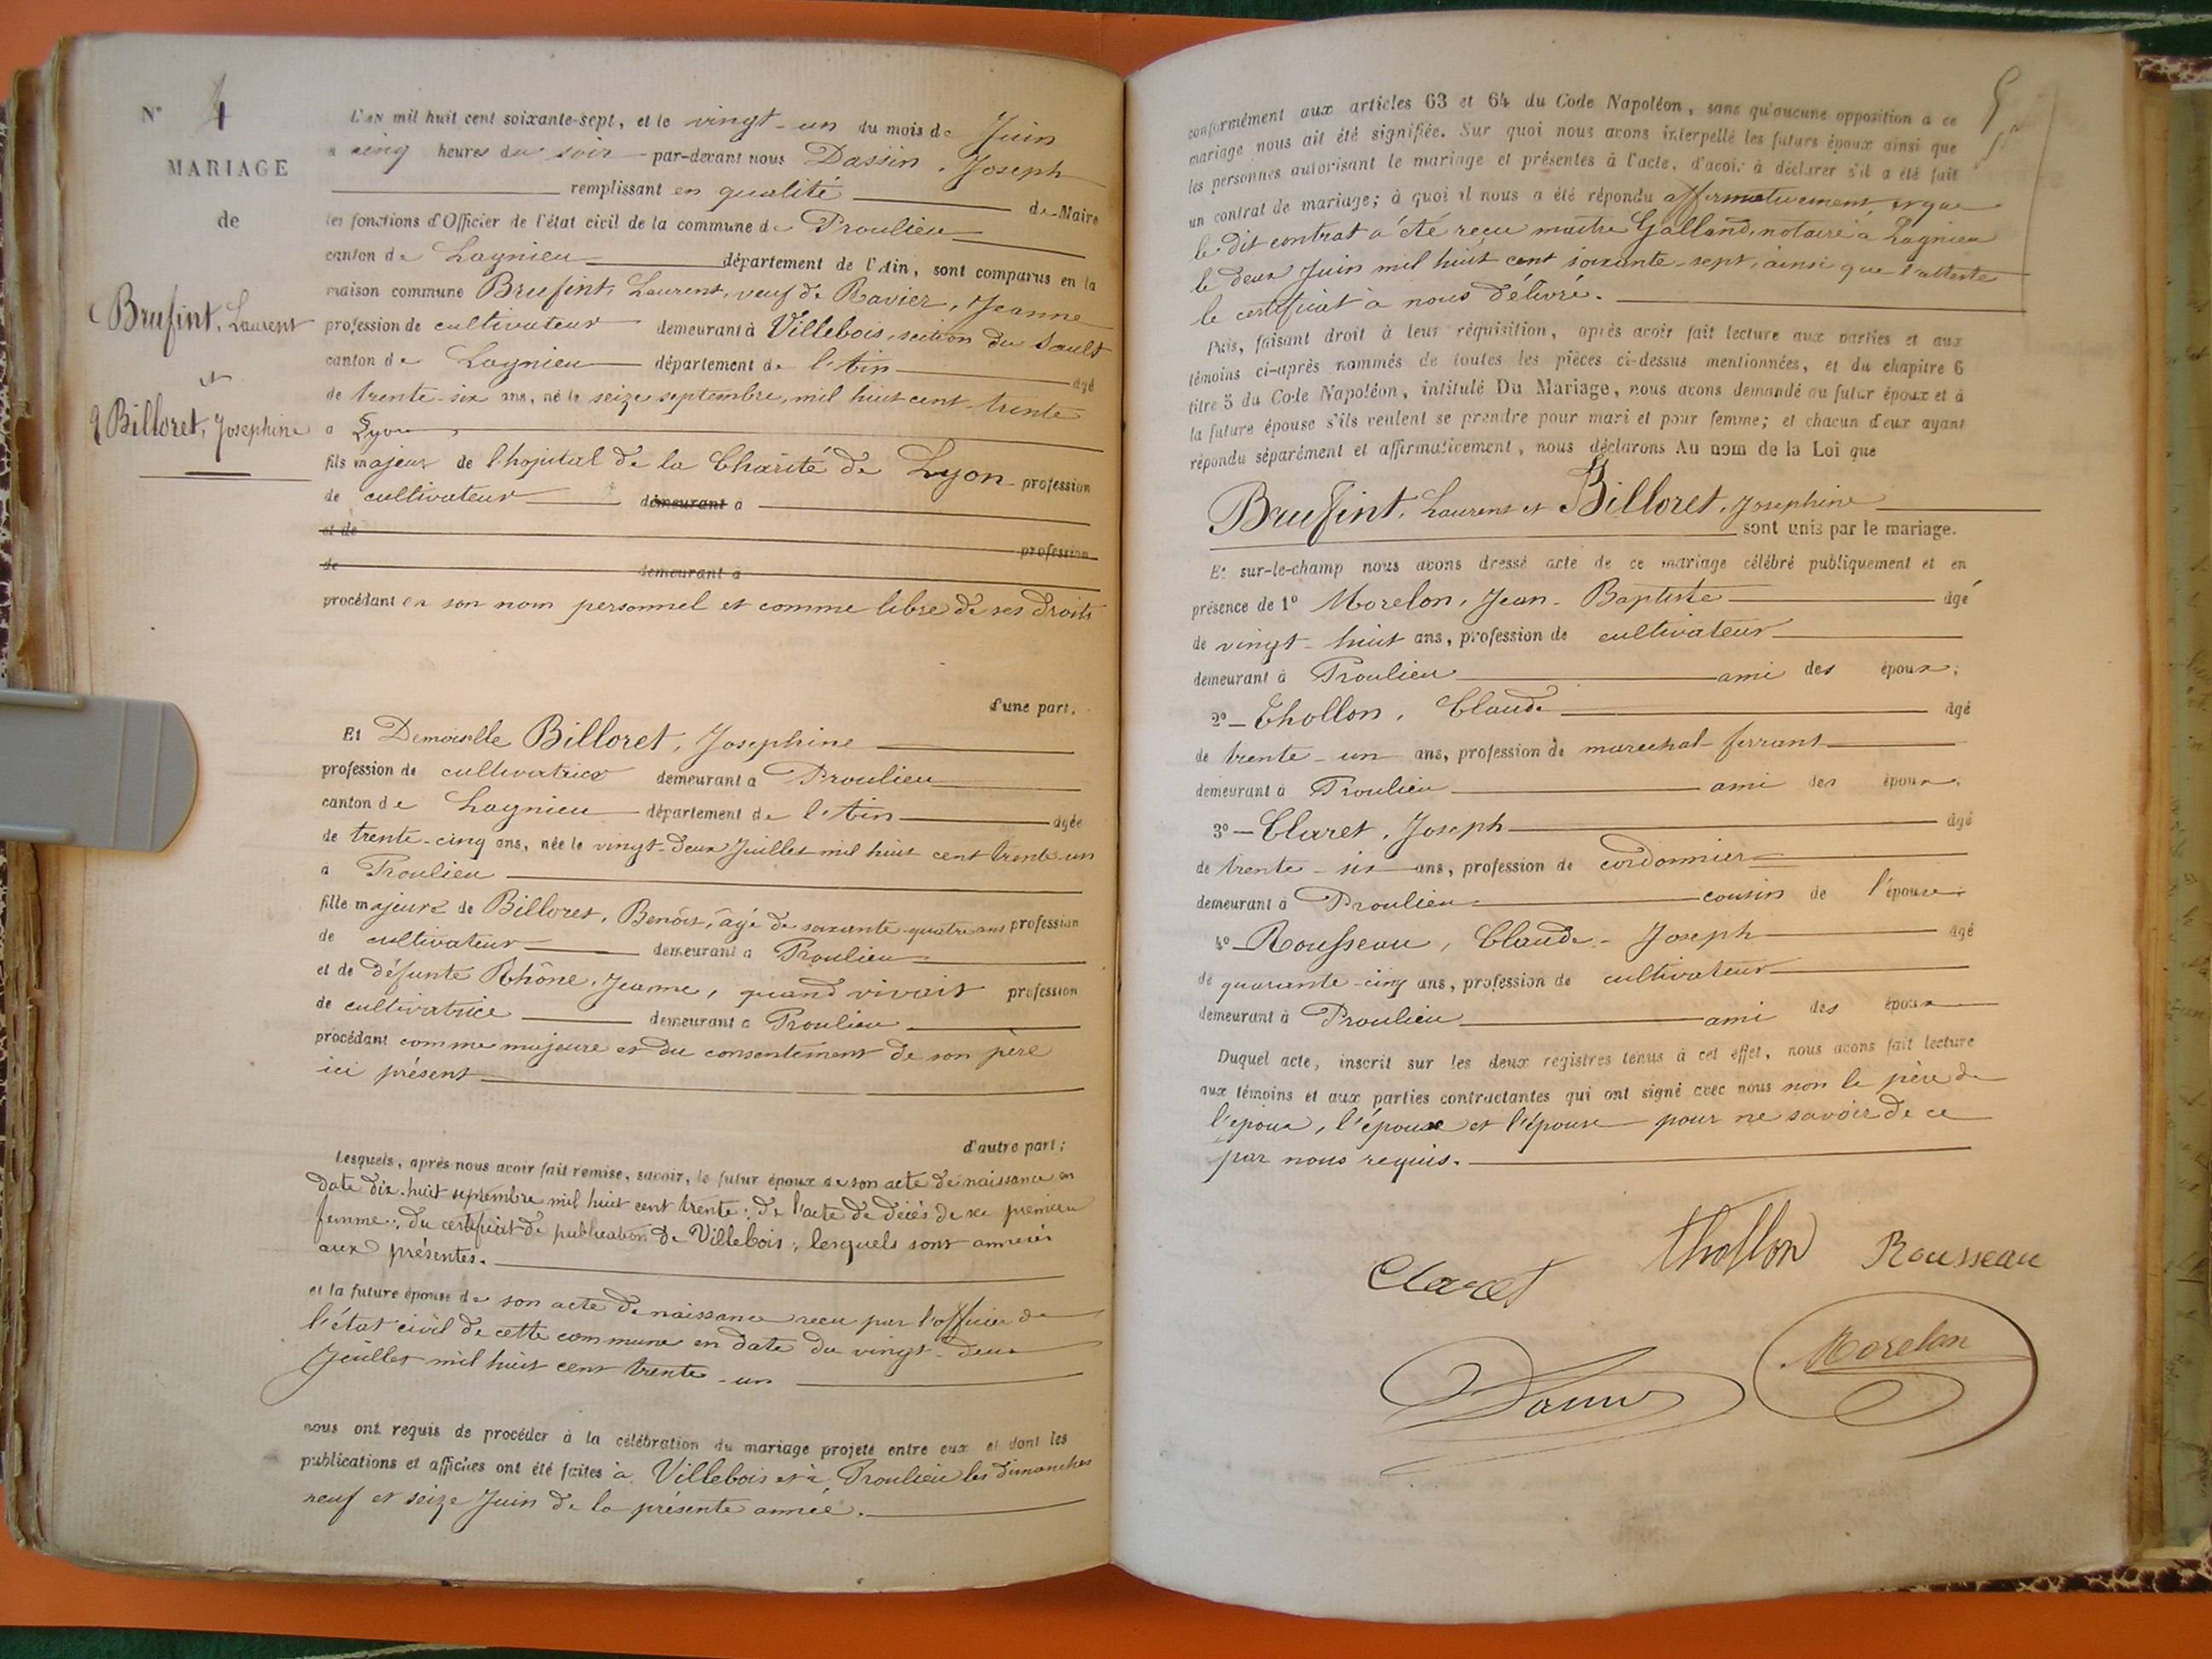 N° 4
MARIAGE
de
Brufint, Laurent
et
Billoret, Josephine
L'AN mil huit cent soixante-sept, et le vingt-un du mois de Juin
a cinq heures du soir par-devant nous Dassin, Joseph
remplissant en qualité de Maire
les fonctions d'Officier de l'état civil de la commune de Proulieu
canton de Lagnieu département de l'Ain, sont comparus en la
maison commune Brufint, Laurent, veuf de Ravier, Jeanne
profession de cultivateur demeurant à Villebois, section du Sault
canton de Lagnieu département de l'Ain âgé
de trente-six ans, né le seize septembre, mil huit cent trente
a Lyon
fils majeur de l'hopital de la Charité de Lyon profession
de cultivateur demeurant à
et de profession
de demeurant à
procédant en son nom personnel et comme libre de ses droits
d'une part,
Et Demoiselle Billoret, Josephine
profession de cultivatrice demeurant a Proulieu
canton de Lagnieu département de l'Ain agée
de trente-cinq ans, née le vingt-deux Juillet mil huit cent trente-un
à Proulieu
fille majeure de Billoret, Benoit, âgé de soixante-quatre ans profession
de cultivateur demeurant a Proulieu
et de défunte Rhône, Jeanne, quand vivait profession
de cultivatrice demeurant a Proulieu
procédant comme majeure et du consentement de son père
ici présent
d'autre part;
Lesquels, après nous avoir fait remise, savoir, le futur époux de son acte de naissance en
date dix-huit septembre mil huit cent trente; de l'acte de décès de sa première
femme; du certificat de publication de Villebois; lesquels sont annexés
aux présentes.
et la future épouse de son acte de naissance recu par l'officier de
l'état civil de cette commune en date du vingt-deux
Juillet mil huit cent trente-un
nous ont requis de procéder à la célébration du mariage projeté entre eux et dont les
publications et affiches ont été faites à Villebois et à Proulieu les dimanches
neuf et seize Juin de la présente année.
5
conformément aux articles 63 et 64 du Code Napoléon, sans qu'aucune opposition a ce
mariage nous ait été signifiée. Sur quoi nous avons interpellé les futurs époux ainsi que
les personnes autorisant le mariage et présentes à l'acte, d'avoir à déclarer s'il a été fait
un contrat de mariage; à quoi il nous a été répondu affirmativement et que
le dit contrat a été recu maitre Galland, notaire à Lagnieu
le deux Juin mil huit cent soixante-sept, ainsi que l'atteste
le certificat à nous délivré.
Puis, faisant droit à leur réquisition, après avoir fait lecture aux parties et aux
témoins ci-après nommés de toutes les pièces ci-dessus mentionnées, et du chapitre 6
titre 5 du Code Napoléon, intitulé Du Mariage, nous avons demandé au futur époux et à
la future épouse s'ils veulent se prendre pour mari et pour femme; et chacun d'eux ayant
répondu séparément et affirmativement, nous déclarons Au nom de la Loi que
Brufint, Laurent et Billoret, Josephine
sont unis par le mariage.
Et sur-le-champ nous avons dressé acte de ce mariage célébré publiquement et en
présence de 1° Morelon, Jean-Baptiste âgé
de vingt-huit ans, profession de cultivateur
demeurant à Proulieu ami des époux;
2° Thollon, Claude âgé
de trente-un ans, profession de marechal-ferrant
demeurant à Proulieu ami des époux;
3° Claret, Joseph âgé
de trente-six ans, profession de cordonnier
demeurant à Proulieu cousin de l'épouse
4° Rousseau, Claude-Joseph âgé
de quarante-cinq ans, profession de cultivateur
demeurant à Proulieu ami des époux
Duquel acte, inscrit sur les deux registres tenus à cet effet, nous avons fait lecture
aux témoins et aux parties contractantes qui ont signé avec nous non le père de
l'époux, l'épouse et l'épouse pour ne savoir de ce
par nous requis.
Claret Thollon Rousseau
Dassin Morelon